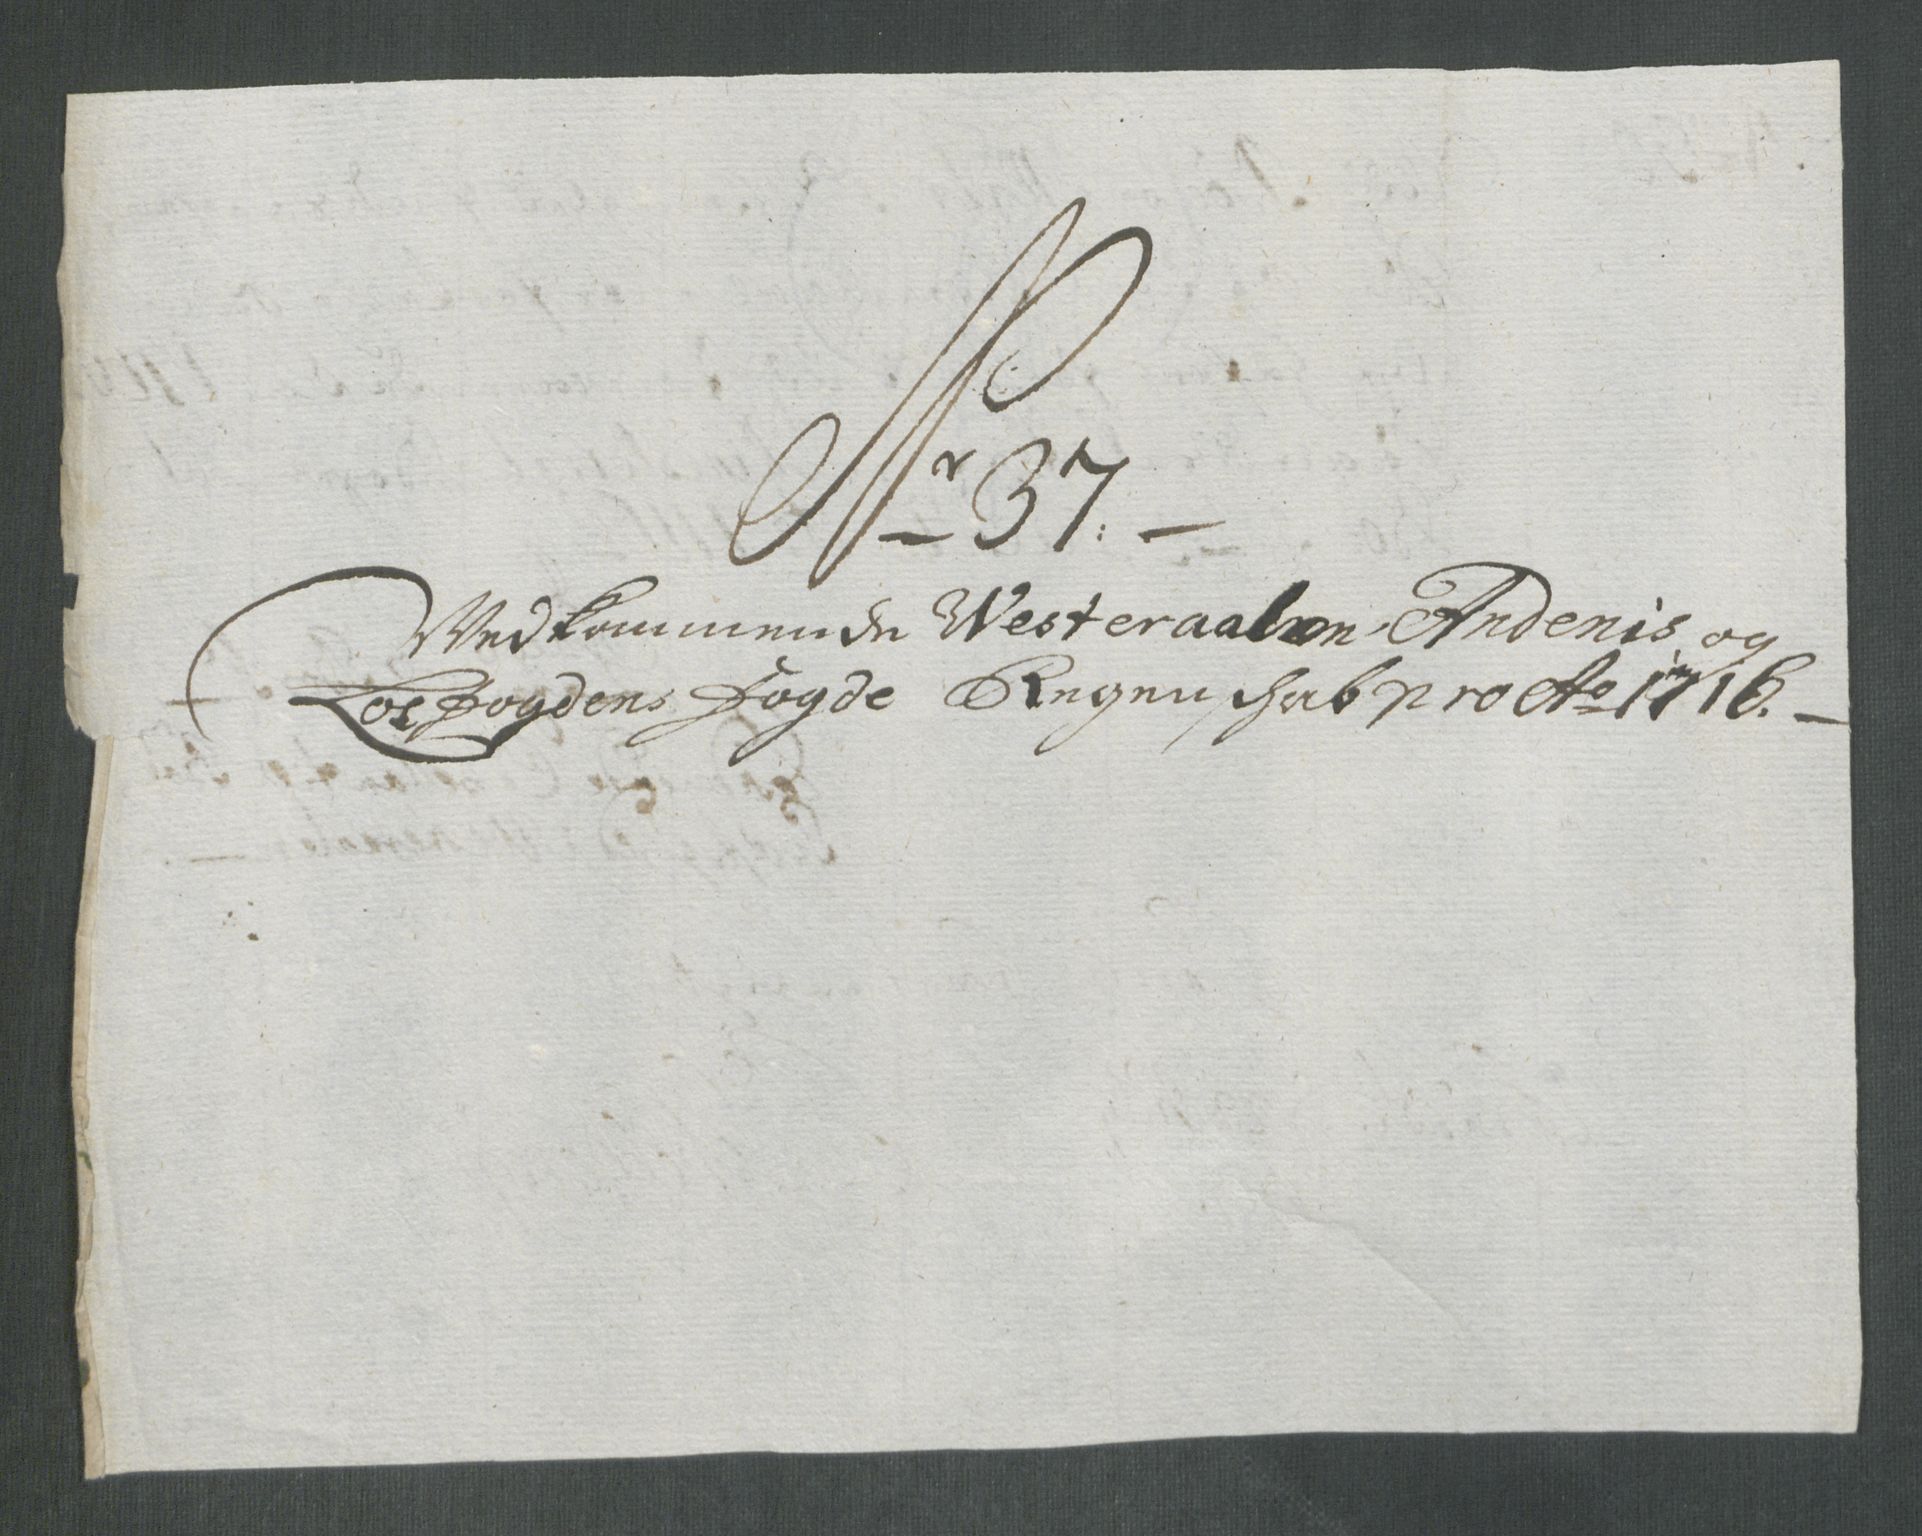 Nr 37.
Vedkommende Westeraalen Andenis og
Loffogdens Fogde Regenschab pro Ao 1716.